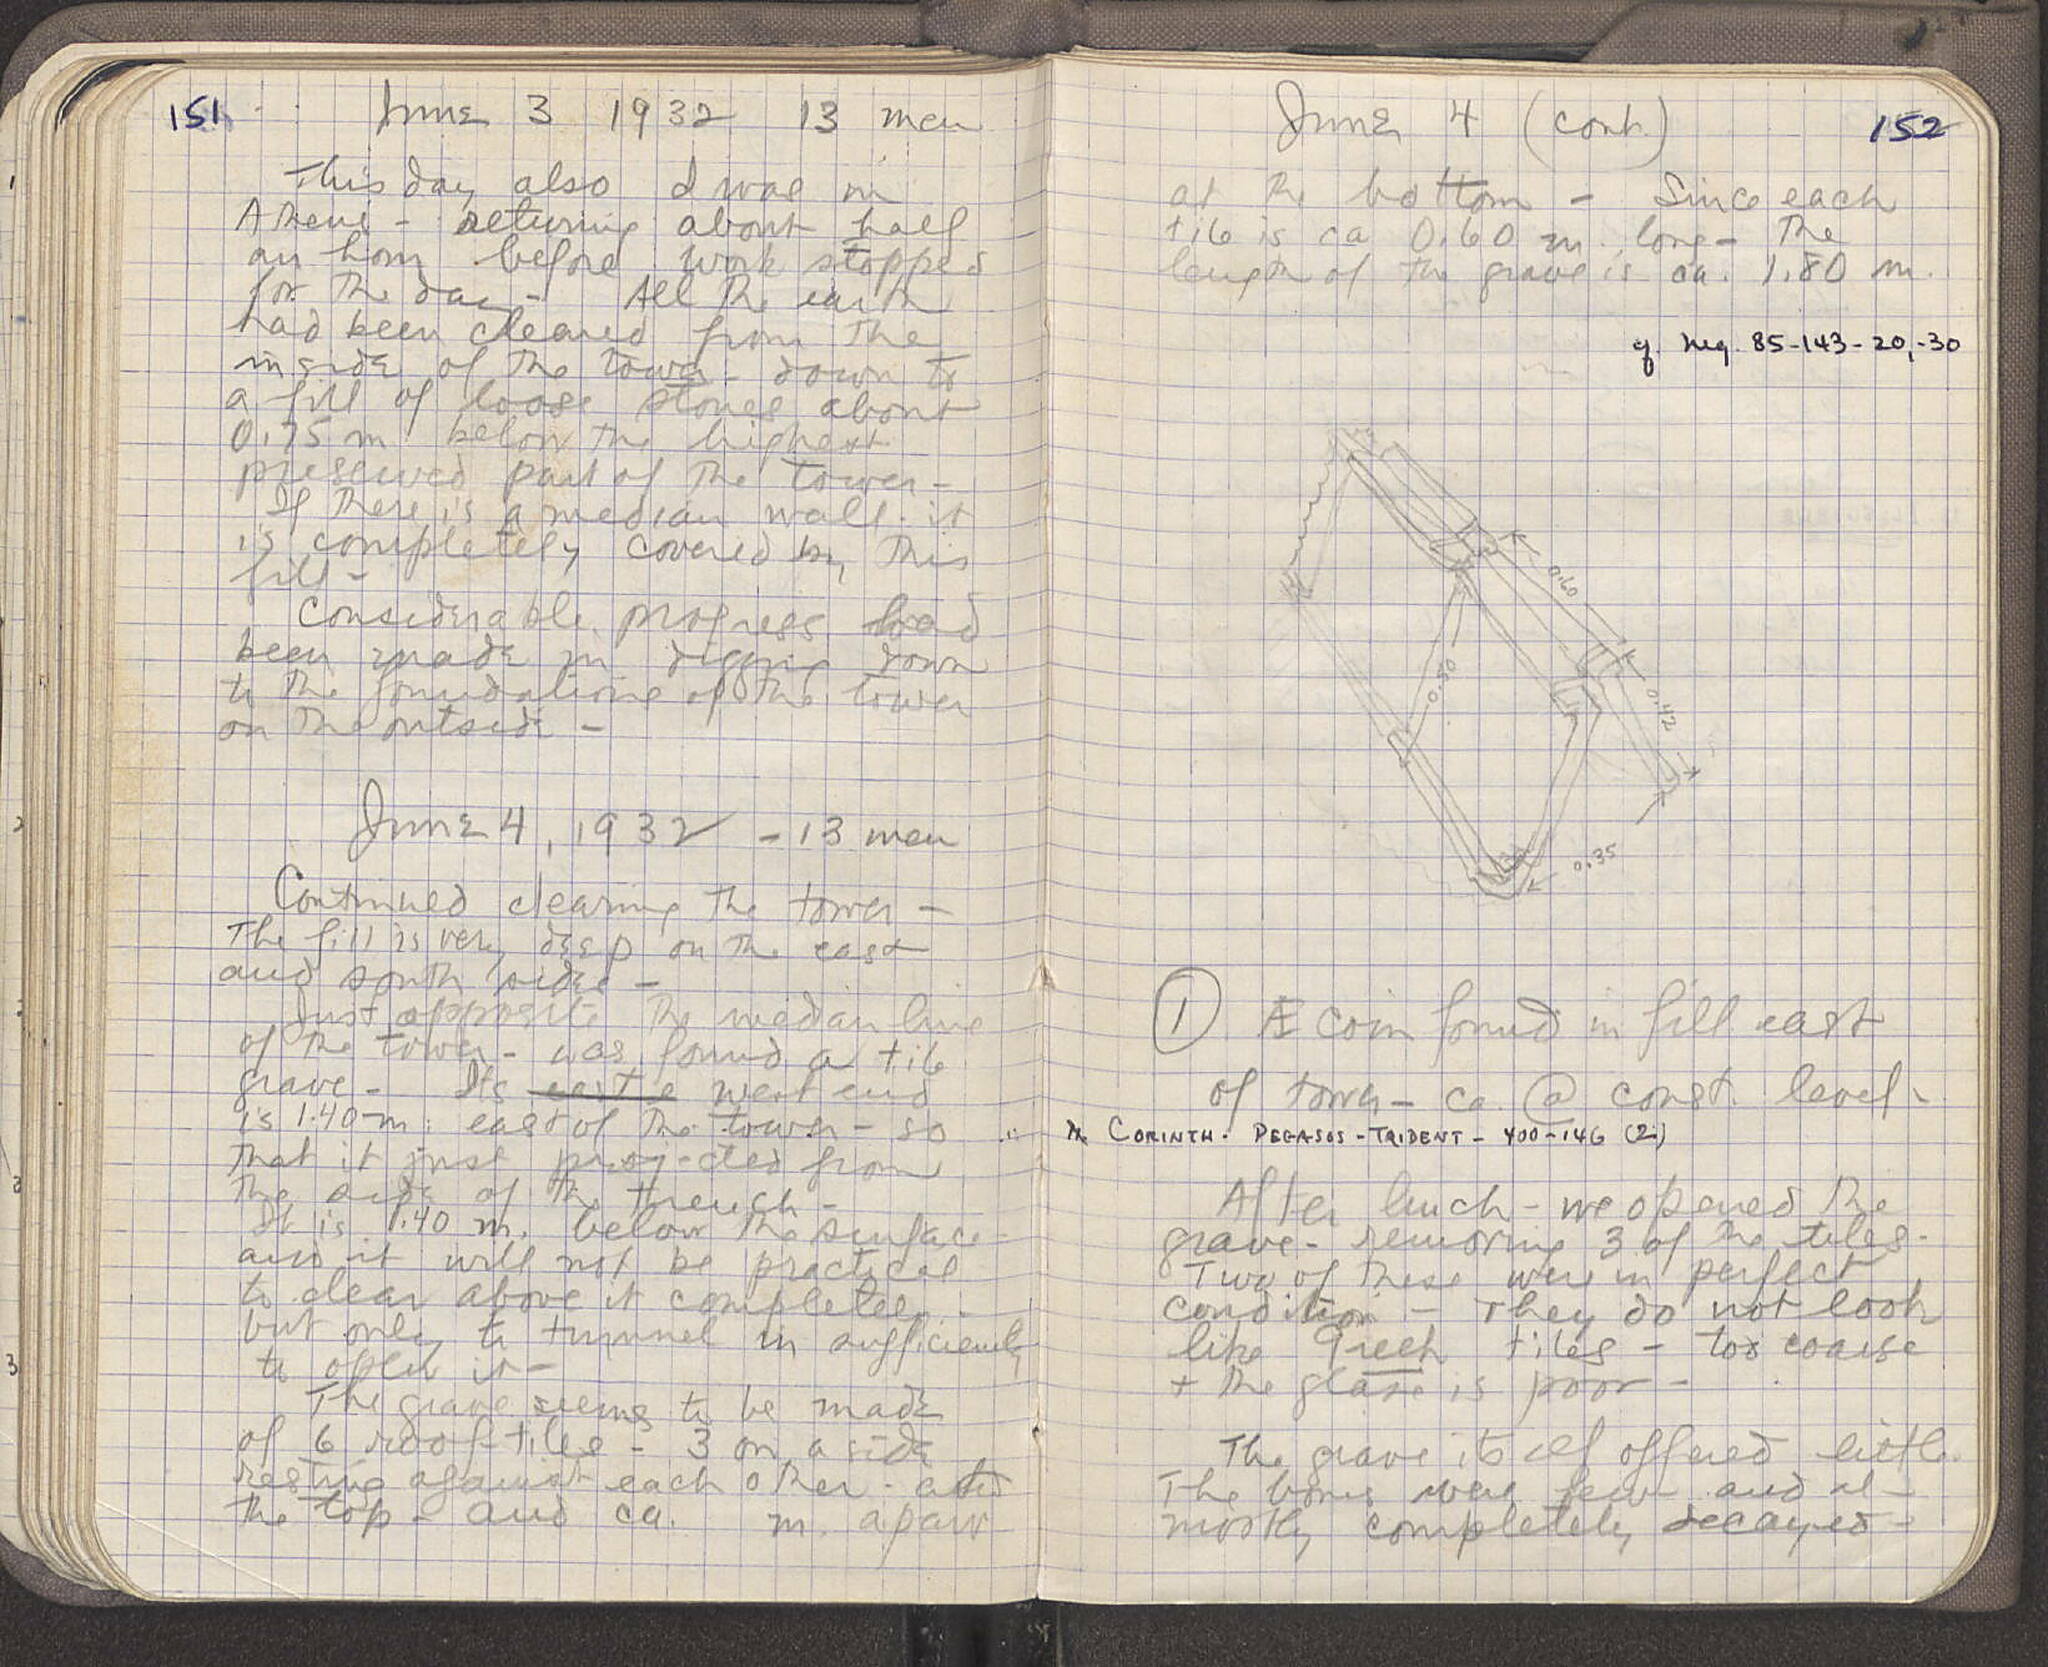 151
June 3 1932 13 men
This day also I was in
Athens - returning about half
an hour before work stopped
for the day - All the earth
had been cleared from the
inside of the tower - down to
a fill of loose stones about
0.75 m below the highest
preserved part of the tower -
If there is a median wall it
is completely covered by this
fill -
Considerable progress had
been made in digging down
to the foundations of the tower
on the outside -
June 4, 1932 - 13 men
Continued clearing the tower -
The fill is very deep on the east
and south sides -
Just opposite the median line
of the tower - was found a tile
grave - Its west end
is 1.40 m. east of the tower - so
that it just projected from
the side of the trench -
It is 1.40 m. below the surface
and it will not be practical
to clear above it completely -
but only to tunnel in sufficiently
to open it -
The grave seems to be made
of 6 roof-tiles - 3 on a side
resting against each other at
the top - and ca. m. apart
152
June 4 (cont.)
at the bottom - Since each
tile is ca 0.60 m. long - the
length of the grave is ca. 1.80 m.
cf. neg. 85-143-20,-30
0.60
0.50
0.42
0.35
1 Æ coin found in fill east
of tower - ca. @ const. level -
CORINTH. PEGASOS - TRIDENT - 400-146 (2)
After lunch - we opened the
grave - removing 3 of the tiles -
Two of these were in perfect
condition - They do not look
like Greek tiles - too coarse
+ the glaze is poor -
The grave itself offered little.
The bones were few and al-
mostly completely decayed -